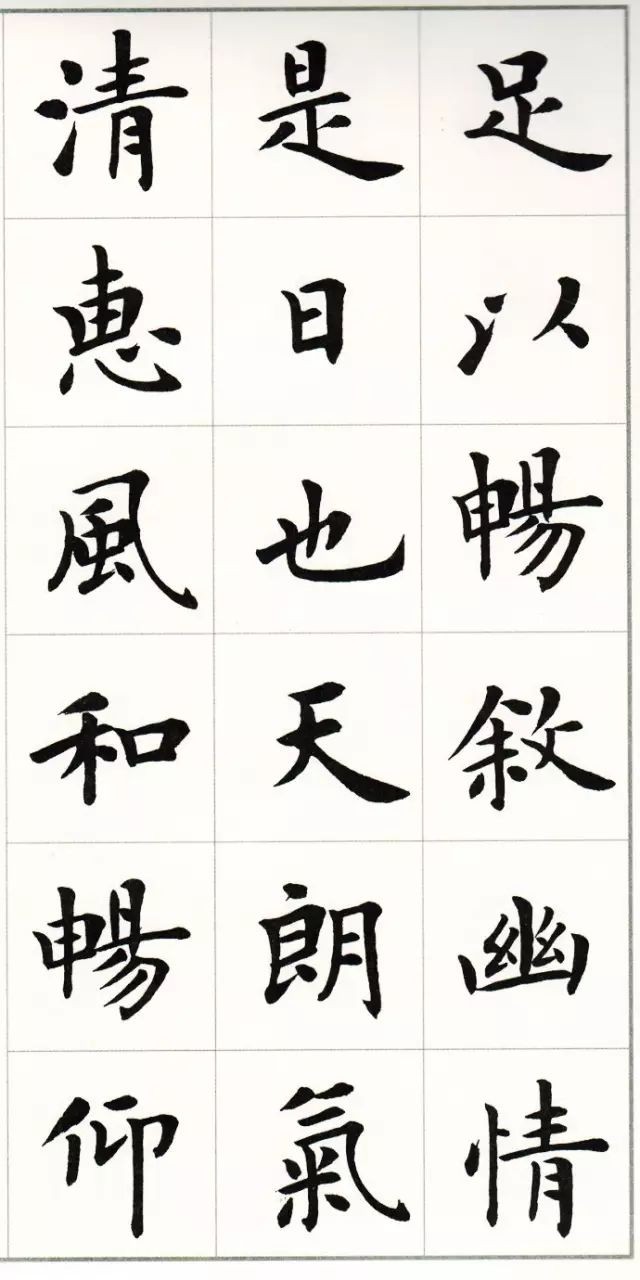 足以暢敘幽情
是日也天朗氣
清惠風和暢仰